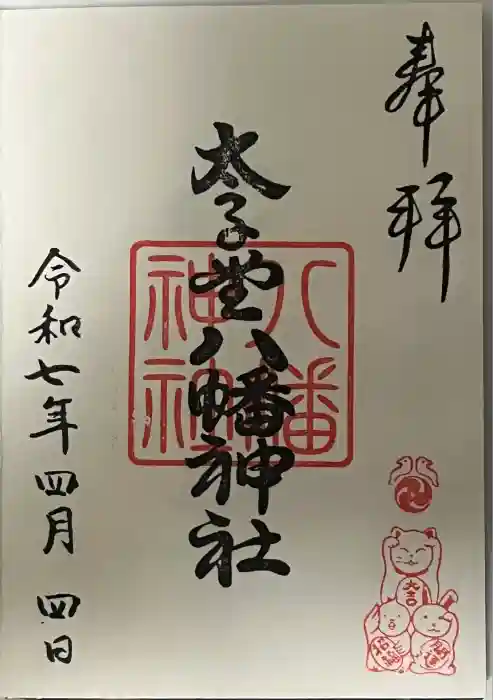 奉拝
太子堂八幡神社
八幡
神社
令和七年四月四日
大吉
開運